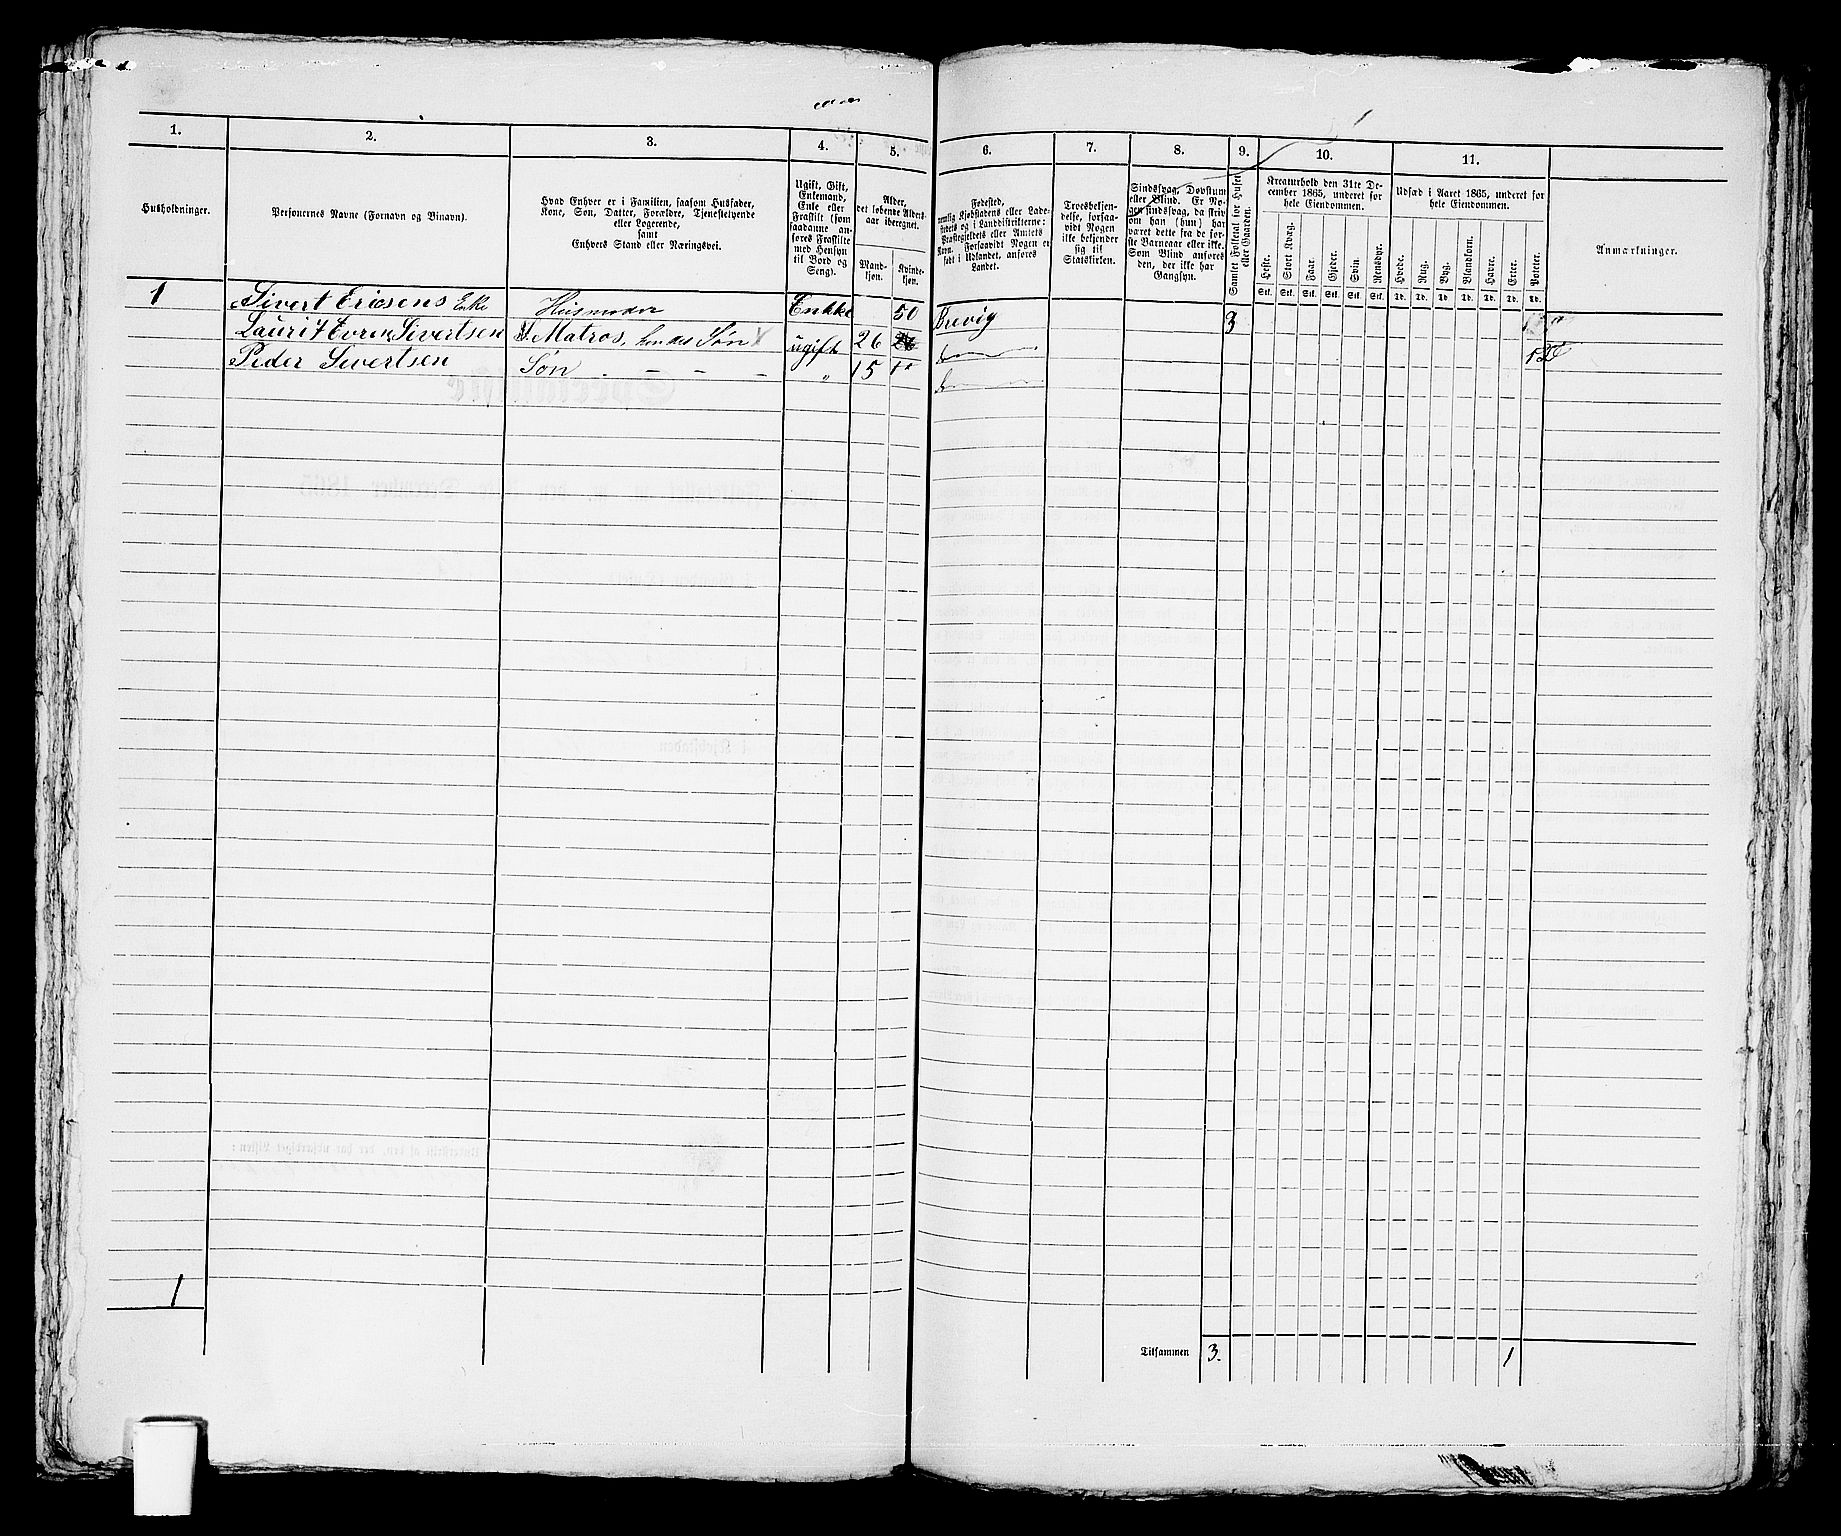 1. 2. 3. 4. 5. 6. 7. 8. 9. 10. 11.
Husholdninger.
Personernes Navne (Fornavn og Binavn).
Hvad Enhver er i Familien, saasom Husfader,
Kone, Søn, Datter, Forældre, Tjenestetyende
eller Logerende,
samt
Enhvers Stand eller Næringsvei.
Ugift, Gift,
Enkemand,
Enke eller
Fraskilt (som
saadanne an-
føres Fraskilte
med Hensyn
til Bord og
Seng).
Alder,
det løbende Alders-
aar iberegnet.
Mand-
kjøn.
Kvinde-
kjøn.
Fødested,
nemlig Kjøbstadens eller Lade-
stedets og i Landdistrikterne:
Præstegjeldets eller Amtets
Navn. Forsaavidt Nogen er
født i Udlandet, anføres
Landet.
Troesbekjen-
delse, forsaa-
vidt Nogen
ikke bekjender
sig til
Statskirken.
Sindssvag, Døvstum
eller Blind. Er No-
gen sindssvag, da skriv
om han (hun) har
været dette fra de før-
ste Barneaar eller ikke.
Som Blind anføres
den, der ikke har
Gangsyn.
Samlet Folketal for Huset
eller Gaarden.
Kreaturhold den 31te De-
cember 1865, underet for
hele Eiendommen.
Heste. Stort Kvæg. Faar. Gjeder. Svin. Rensdyr.
Stk. Stk. Stk. Stk. Stk. Stk.
Udsæd i Aaret 1865, underet for
hele Eiendommen.
Hvede. Rug. Byg. Blandkorn. Havre. Erter. Poteter.
Td. Td. Td. Td. Td. Td. Td.
Anmærkninger.
1 Sivert Ericsens Enke Husmoder Enkke 50 Brevig 3
Sivertsen Matros, hendes Søn ugift 26
Peder Sivertsen Søn - - - - " 15
1
Tilsammen 3. 1